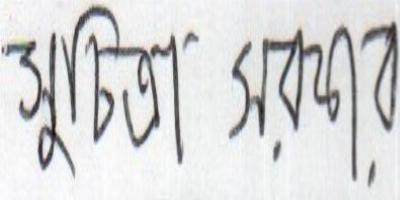 সুচিত্রা সরদার